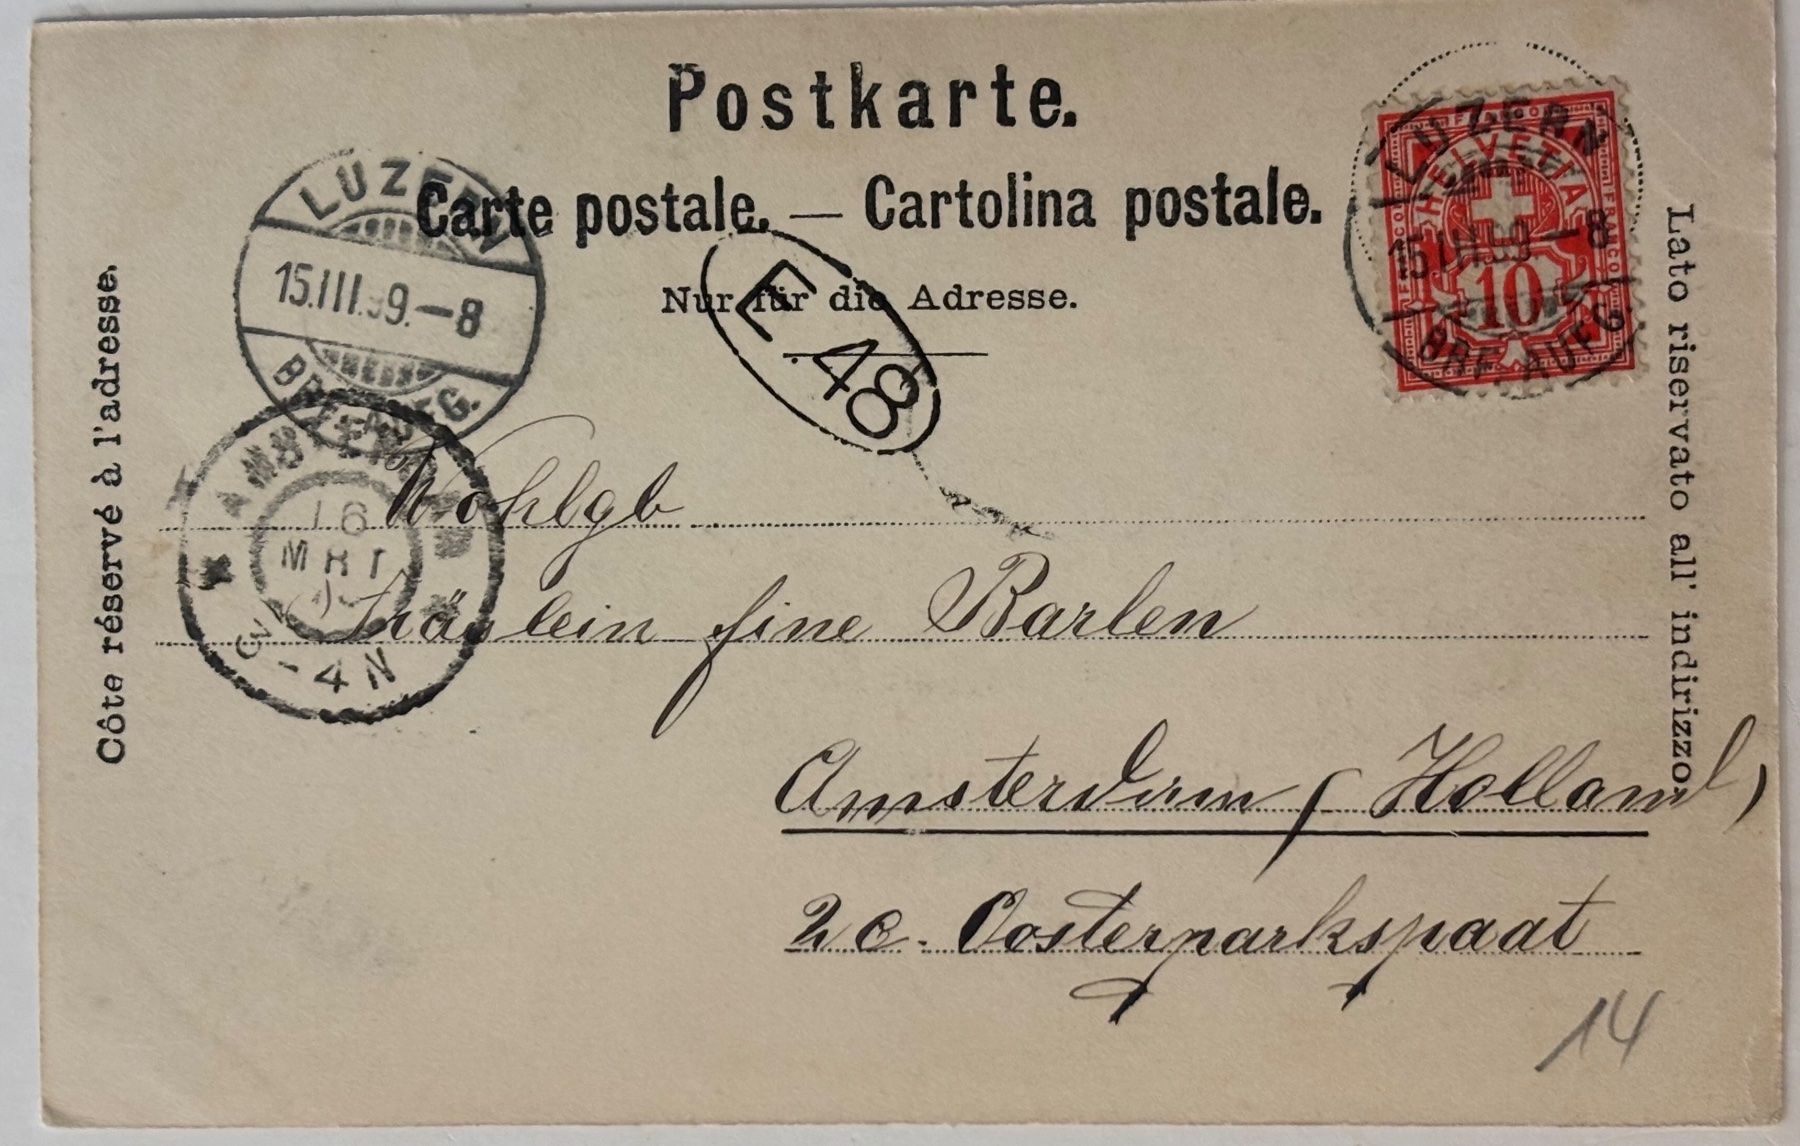 Postkarte.
Carte postale. — Cartolina postale.
Nur für die Adresse.
Côte réservé à l'adresse.
Lato riservato all' indirizzo.
LUZERN
15.III.99.–8
BRF. AUFG.
LUZERN
15.III.99–8
BRF. AUFG.
HELVETIA
FRANCO
FRANCO
FRANCO
10
E.48
AMSTERDAM
16
MRT
-4 N
Wohlgb
Fräulein fine Barlen
Amsterdam (Holland)
2e. Oosterparkspaat
14